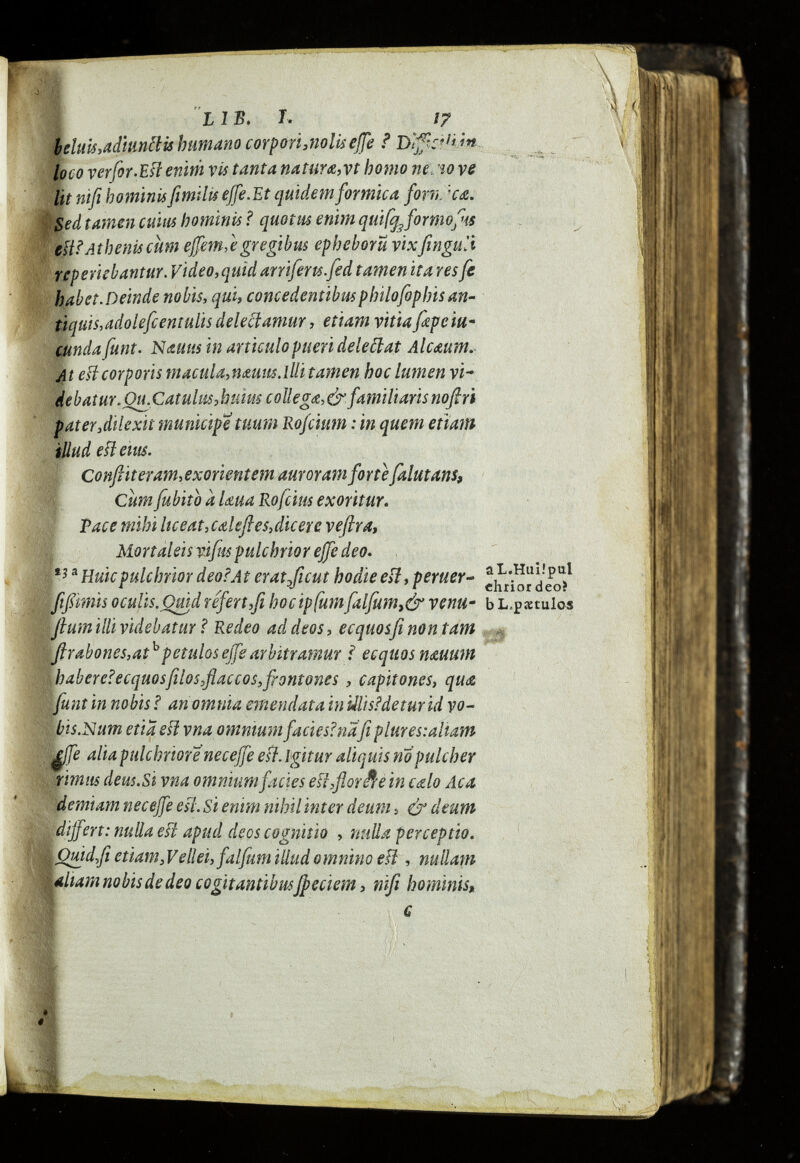 LIB. I. 17
beluis,adiunctis humano corpori,nolis esse ? Difficili in
loco versor.Est enim vis tanta naturæ,vt homo ne
lit nisi hominis similis esse.Et quidem formica
Sed tamen cuius hominis ? quotus enim quisq;formosus
est?Athenis cùm essem,è gregibus epheborū vix singuli
reperiebantur. Video,quid arriseris.sed tamen ita res se
habet.Deinde nobis, qui, concedentibus philosophis an-
tiquis,adolescentulis delectamur, etiam vitia sæpe iu-
cunda sunt. Næuus in articulo pueri delectat Alcæum.
At est corporis macula,næuus.Illi tamen hoc lumen vi-
debatur.Qu.Catulus,huius collegæ,& familiaris nostri
pater,dilexit municipē tuum Roscium : in quem etiam
illud est eius.
Constiteram,exorientem auroram fortè salutans,
Cùm subitò à læua Roscius exoritur.
Pace mihi liceat,cælestes,dicere vestra,
Mortaleis visus pulchrior esse deo.
*3 a Huic pulchrior deo?At erat,sicut hodie est, peruer-
sissimis oculis.Quid refert,si hoc ipsum salsum,& venu-
stum illi videbatur ? Redeo ad deos, ecquos si non tam
strabones,at b petulos esse arbitramur ? ecquos næuum
habere?ecquos silos,flaccos,frontones , capitones, quæ
sunt in nobis ? an omnia emendata in illis?detur id vo-
bis.Num etiā est vna omnium facies?nā si plures:aliam
esse alia pulchriorē necesse est.Igitur aliquis nō pulcher
rimus deus.Si vna omnium facies est,florere in cælo Aca
demiam necesse est. Si enim nihil inter deum, & deum
differt: nulla est apud deos cognitio , nulla perceptio.
Quid,si etiam,Vellei, falsum illud omnino est , nullam
aliam nobis de deo cogitantibus speciem, nisi hominis,
C
a L.Hui!pul
chrior deo?
b L.pætulos